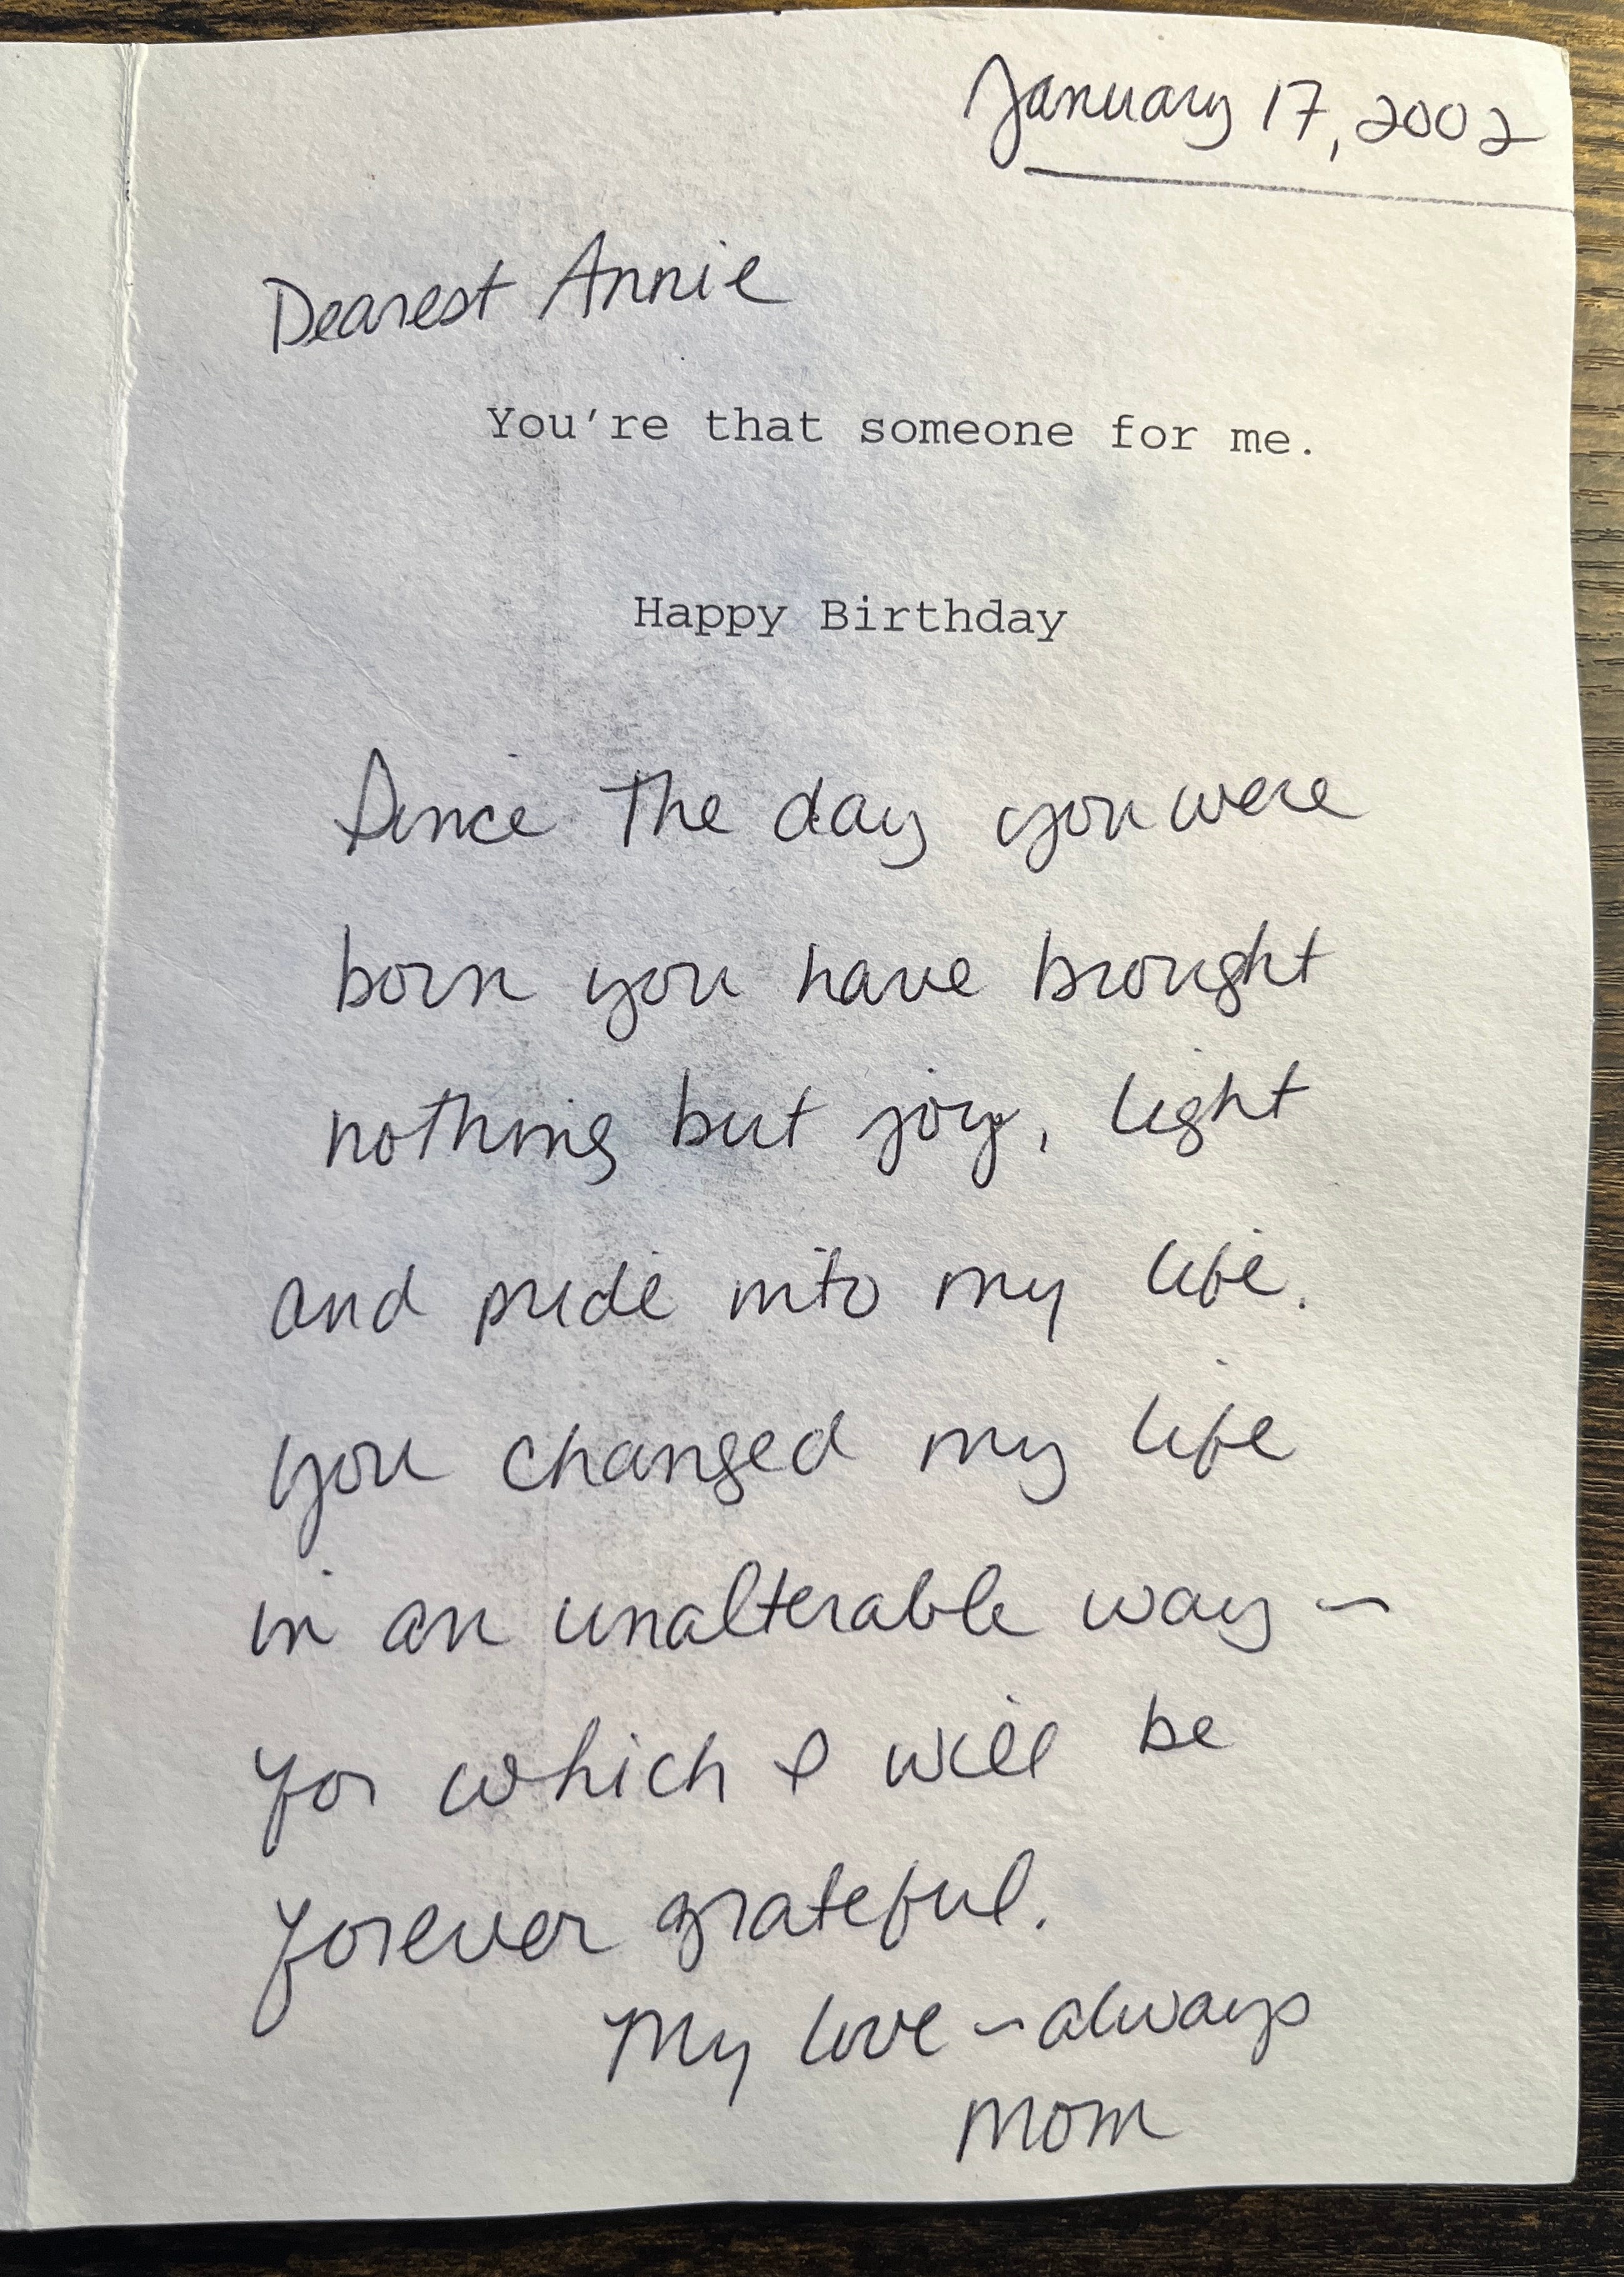 January 17, 2002
Dearest Annie
You're that someone for me.
Happy Birthday
Since the day you were
born you have brought
nothing but joy, light
and pride into my life.
you changed my life
in an unalterable way ~
for which I will be
forever grateful.
My love ~ always
Mom